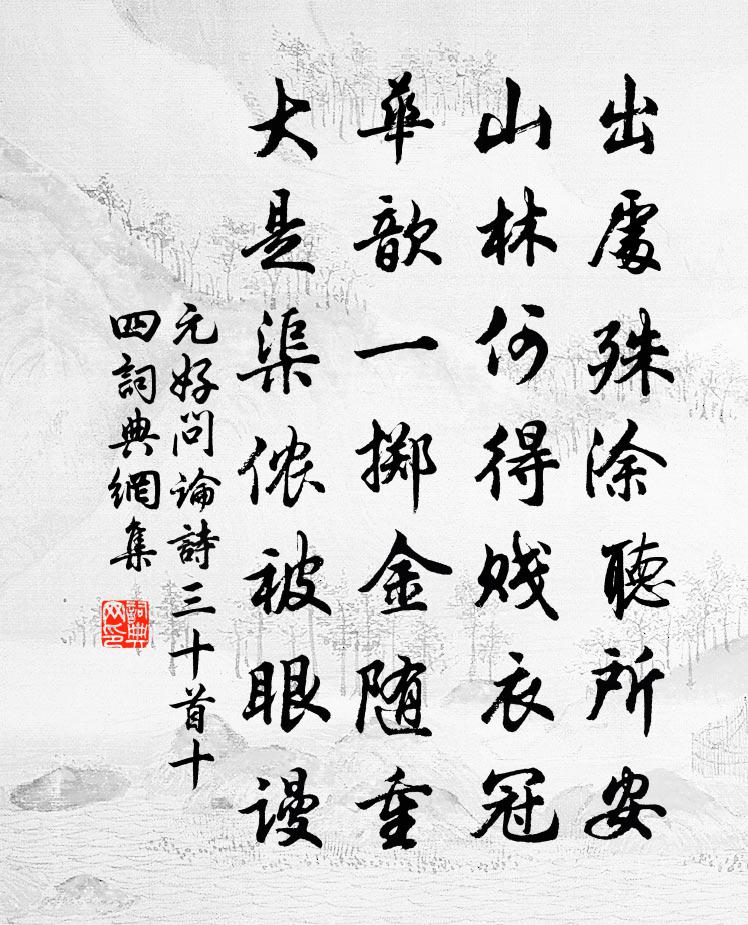 出處殊涂聽所安
山林何得賤衣冠
華歆一擲金随重
大是渠侬被眼谩
元好問論詩三十首十
四詞典網集
詞典
网印